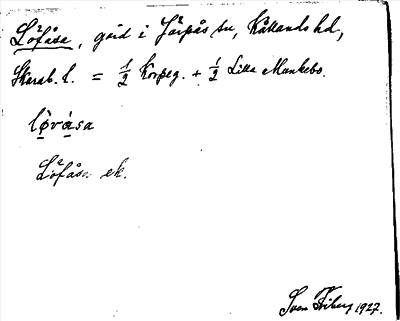 Löfåsa, gård i Järpås sn, Kållands hd,
Skarab. l. = 1/2 Korpeg. + 1/2 Lilla Munkebo.
lǫ̀vàsa
Löfåsa ek.
Sven 1927.